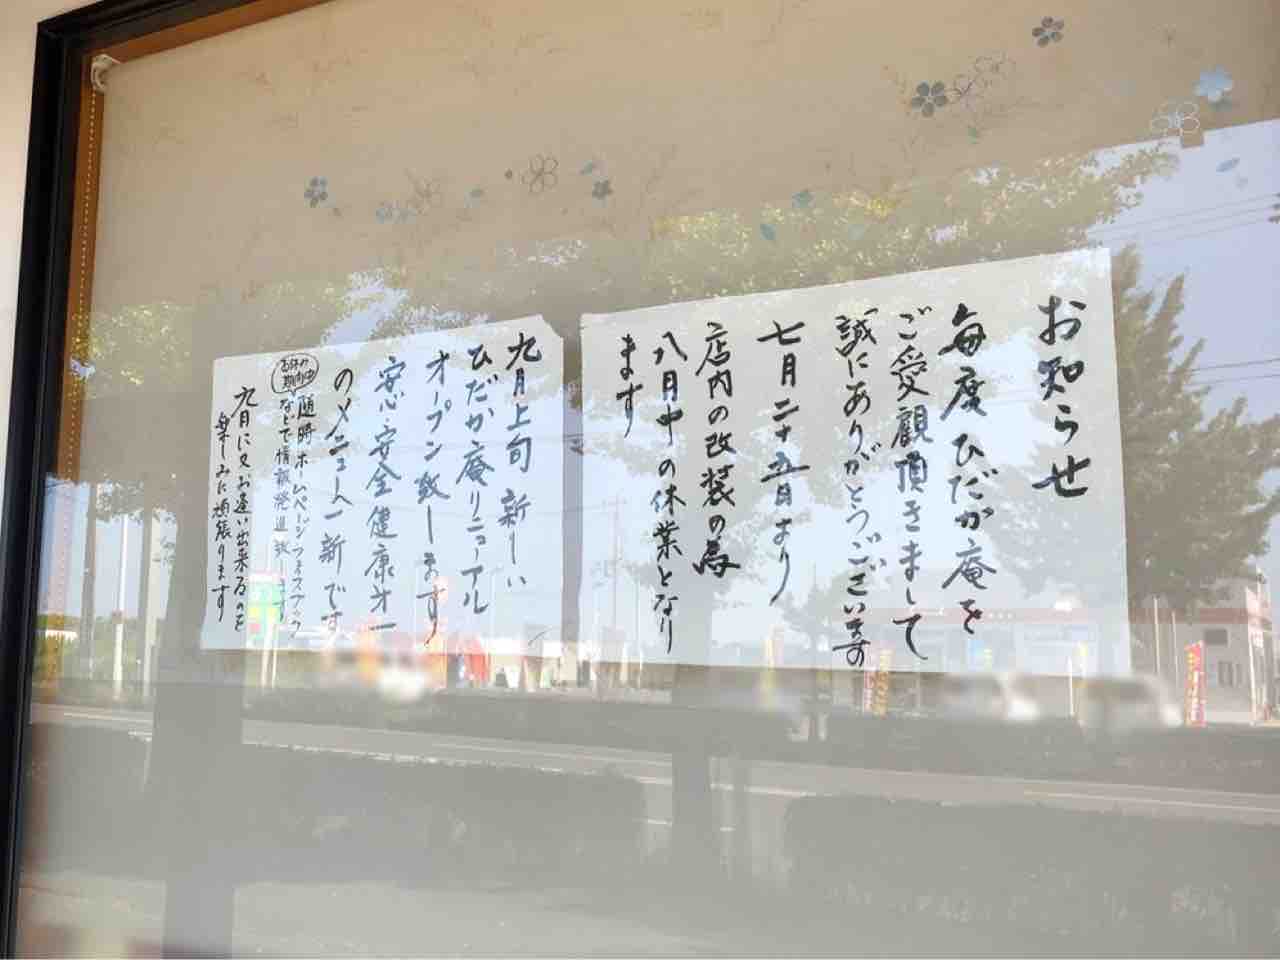 お知らせ
毎度ひだか庵を
ご愛顧頂きまして
誠にありがとうございます
七月二十五日より
店内の改装の為
八月中の休業となり
ます
九月上旬 新しい
ひだか庵リニューアル
オープン致します
安心安全健康
のメニュー一新です
お休み期間中
随時ホームページフェイスブック
などで情報発進致します
九月に又お逢い出来るのを
楽しみに頑張ります